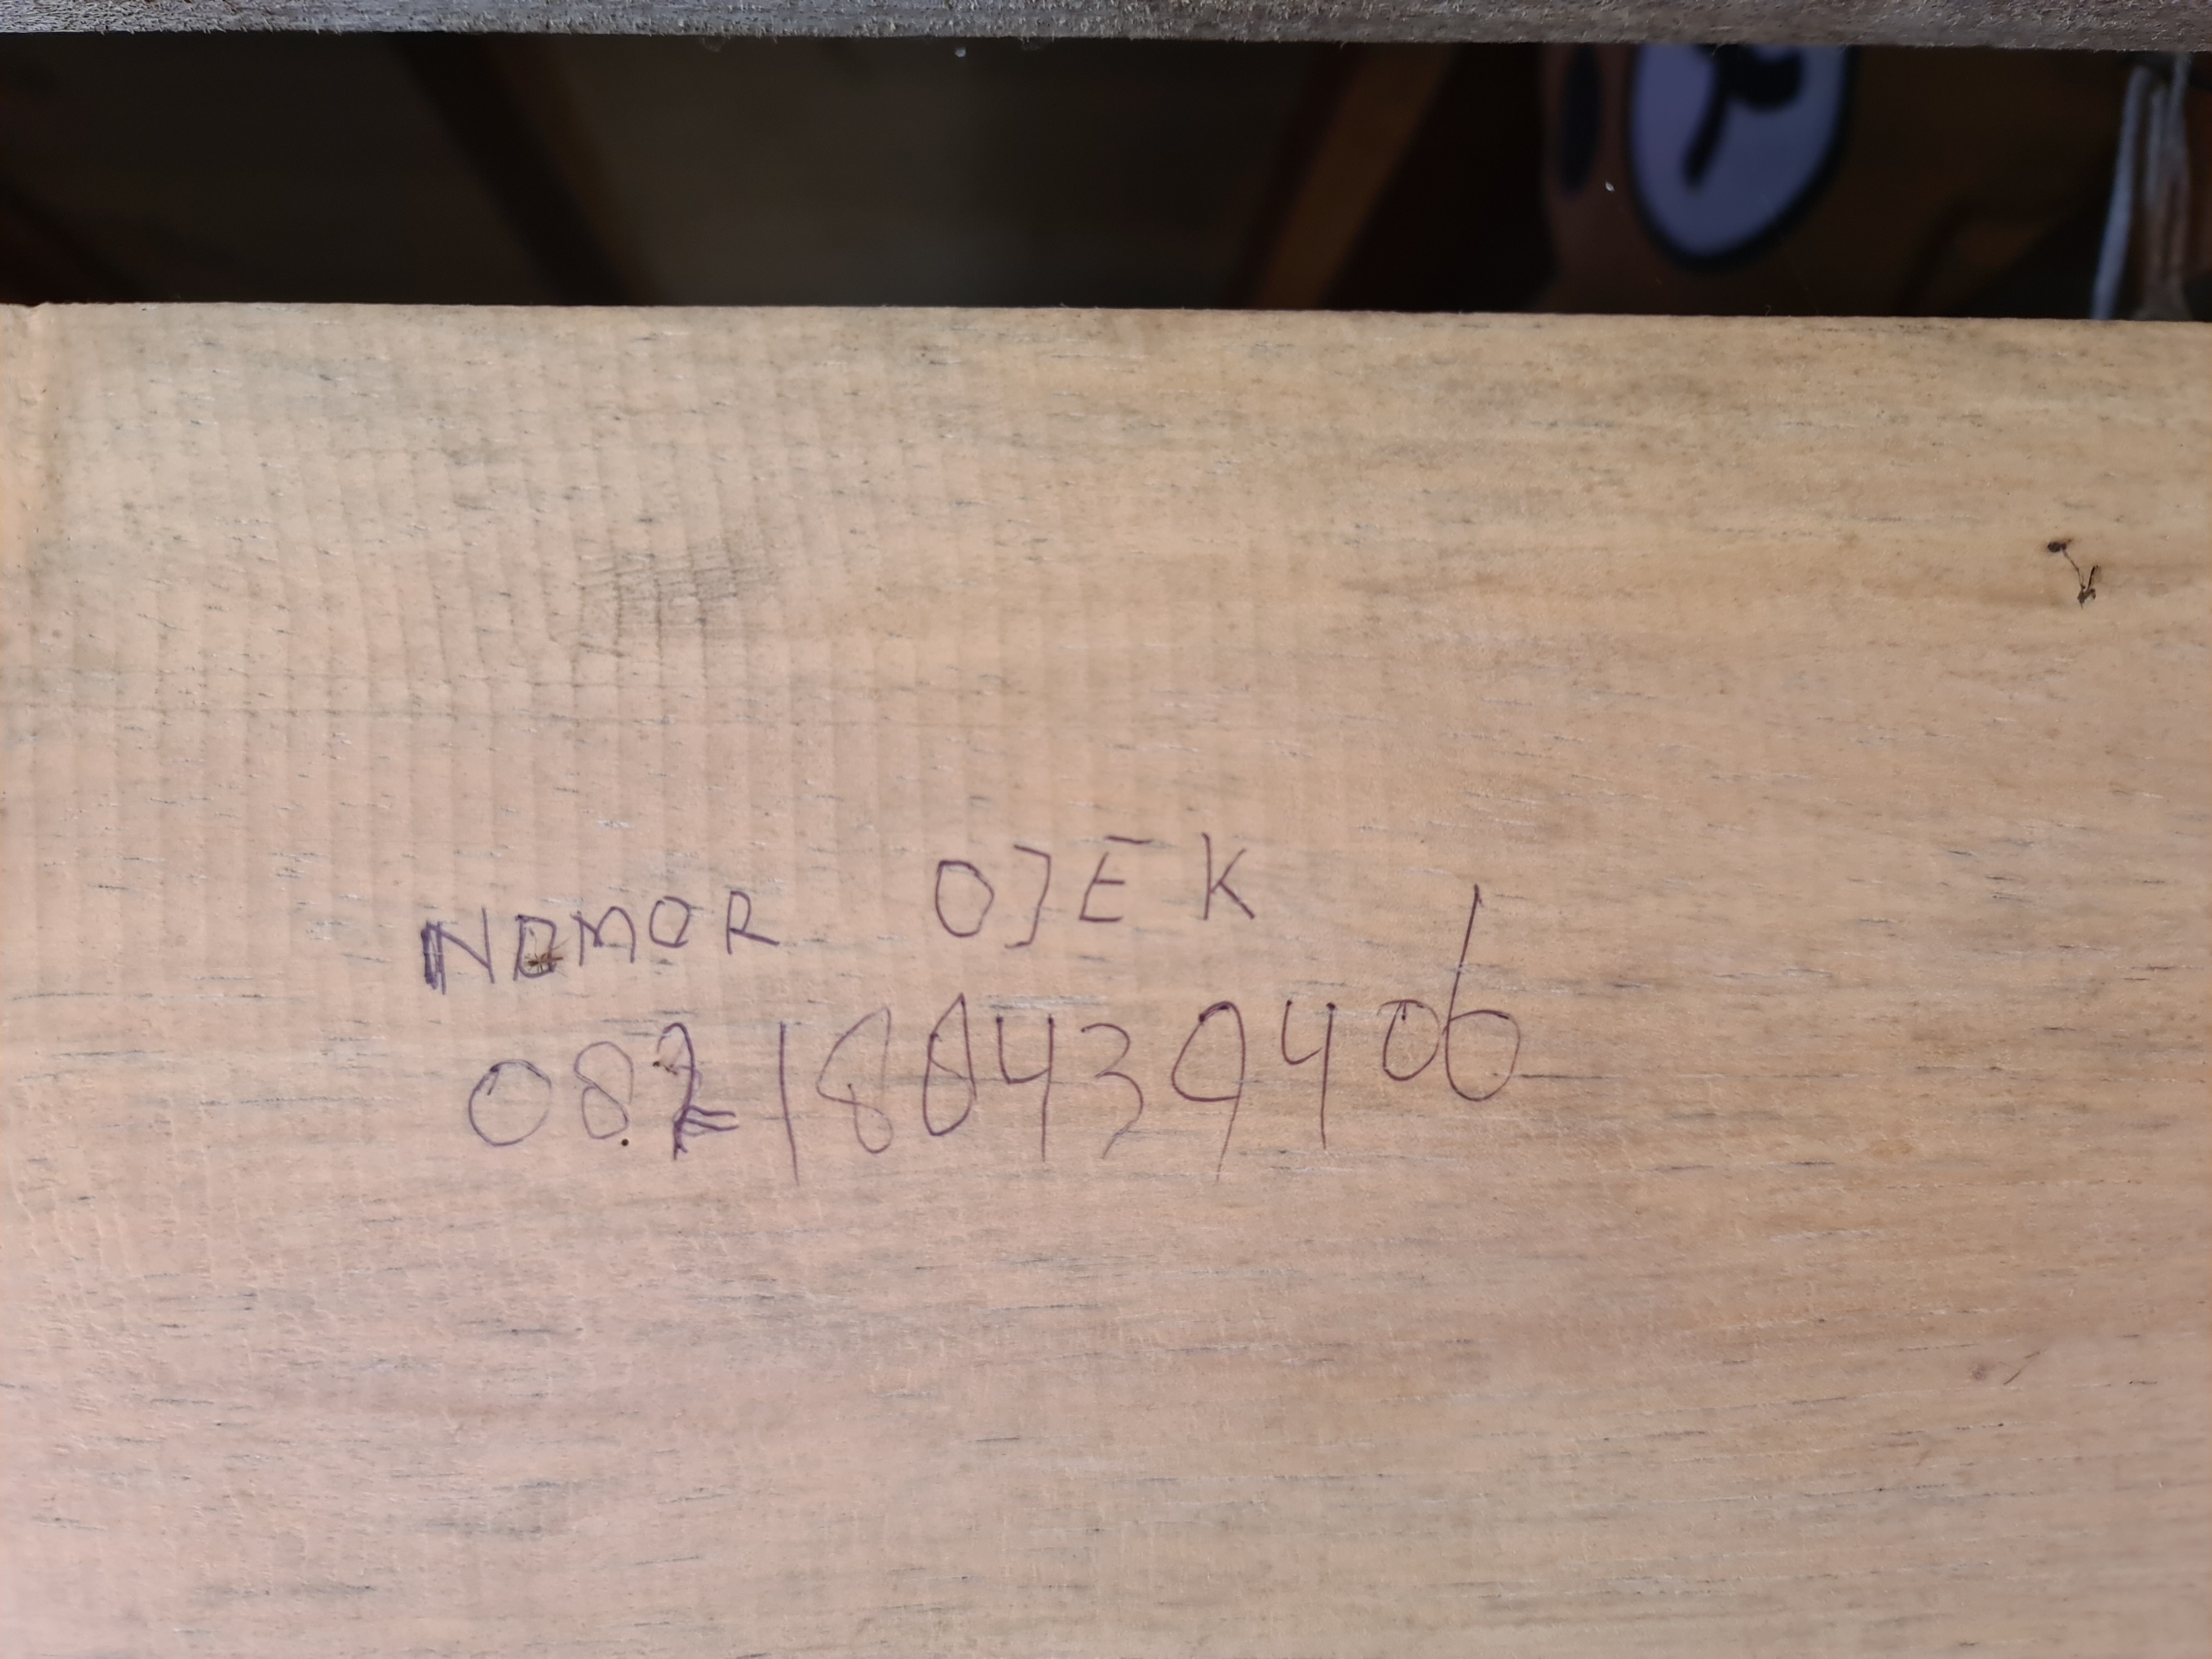 NOMOR OJEK
082180439406